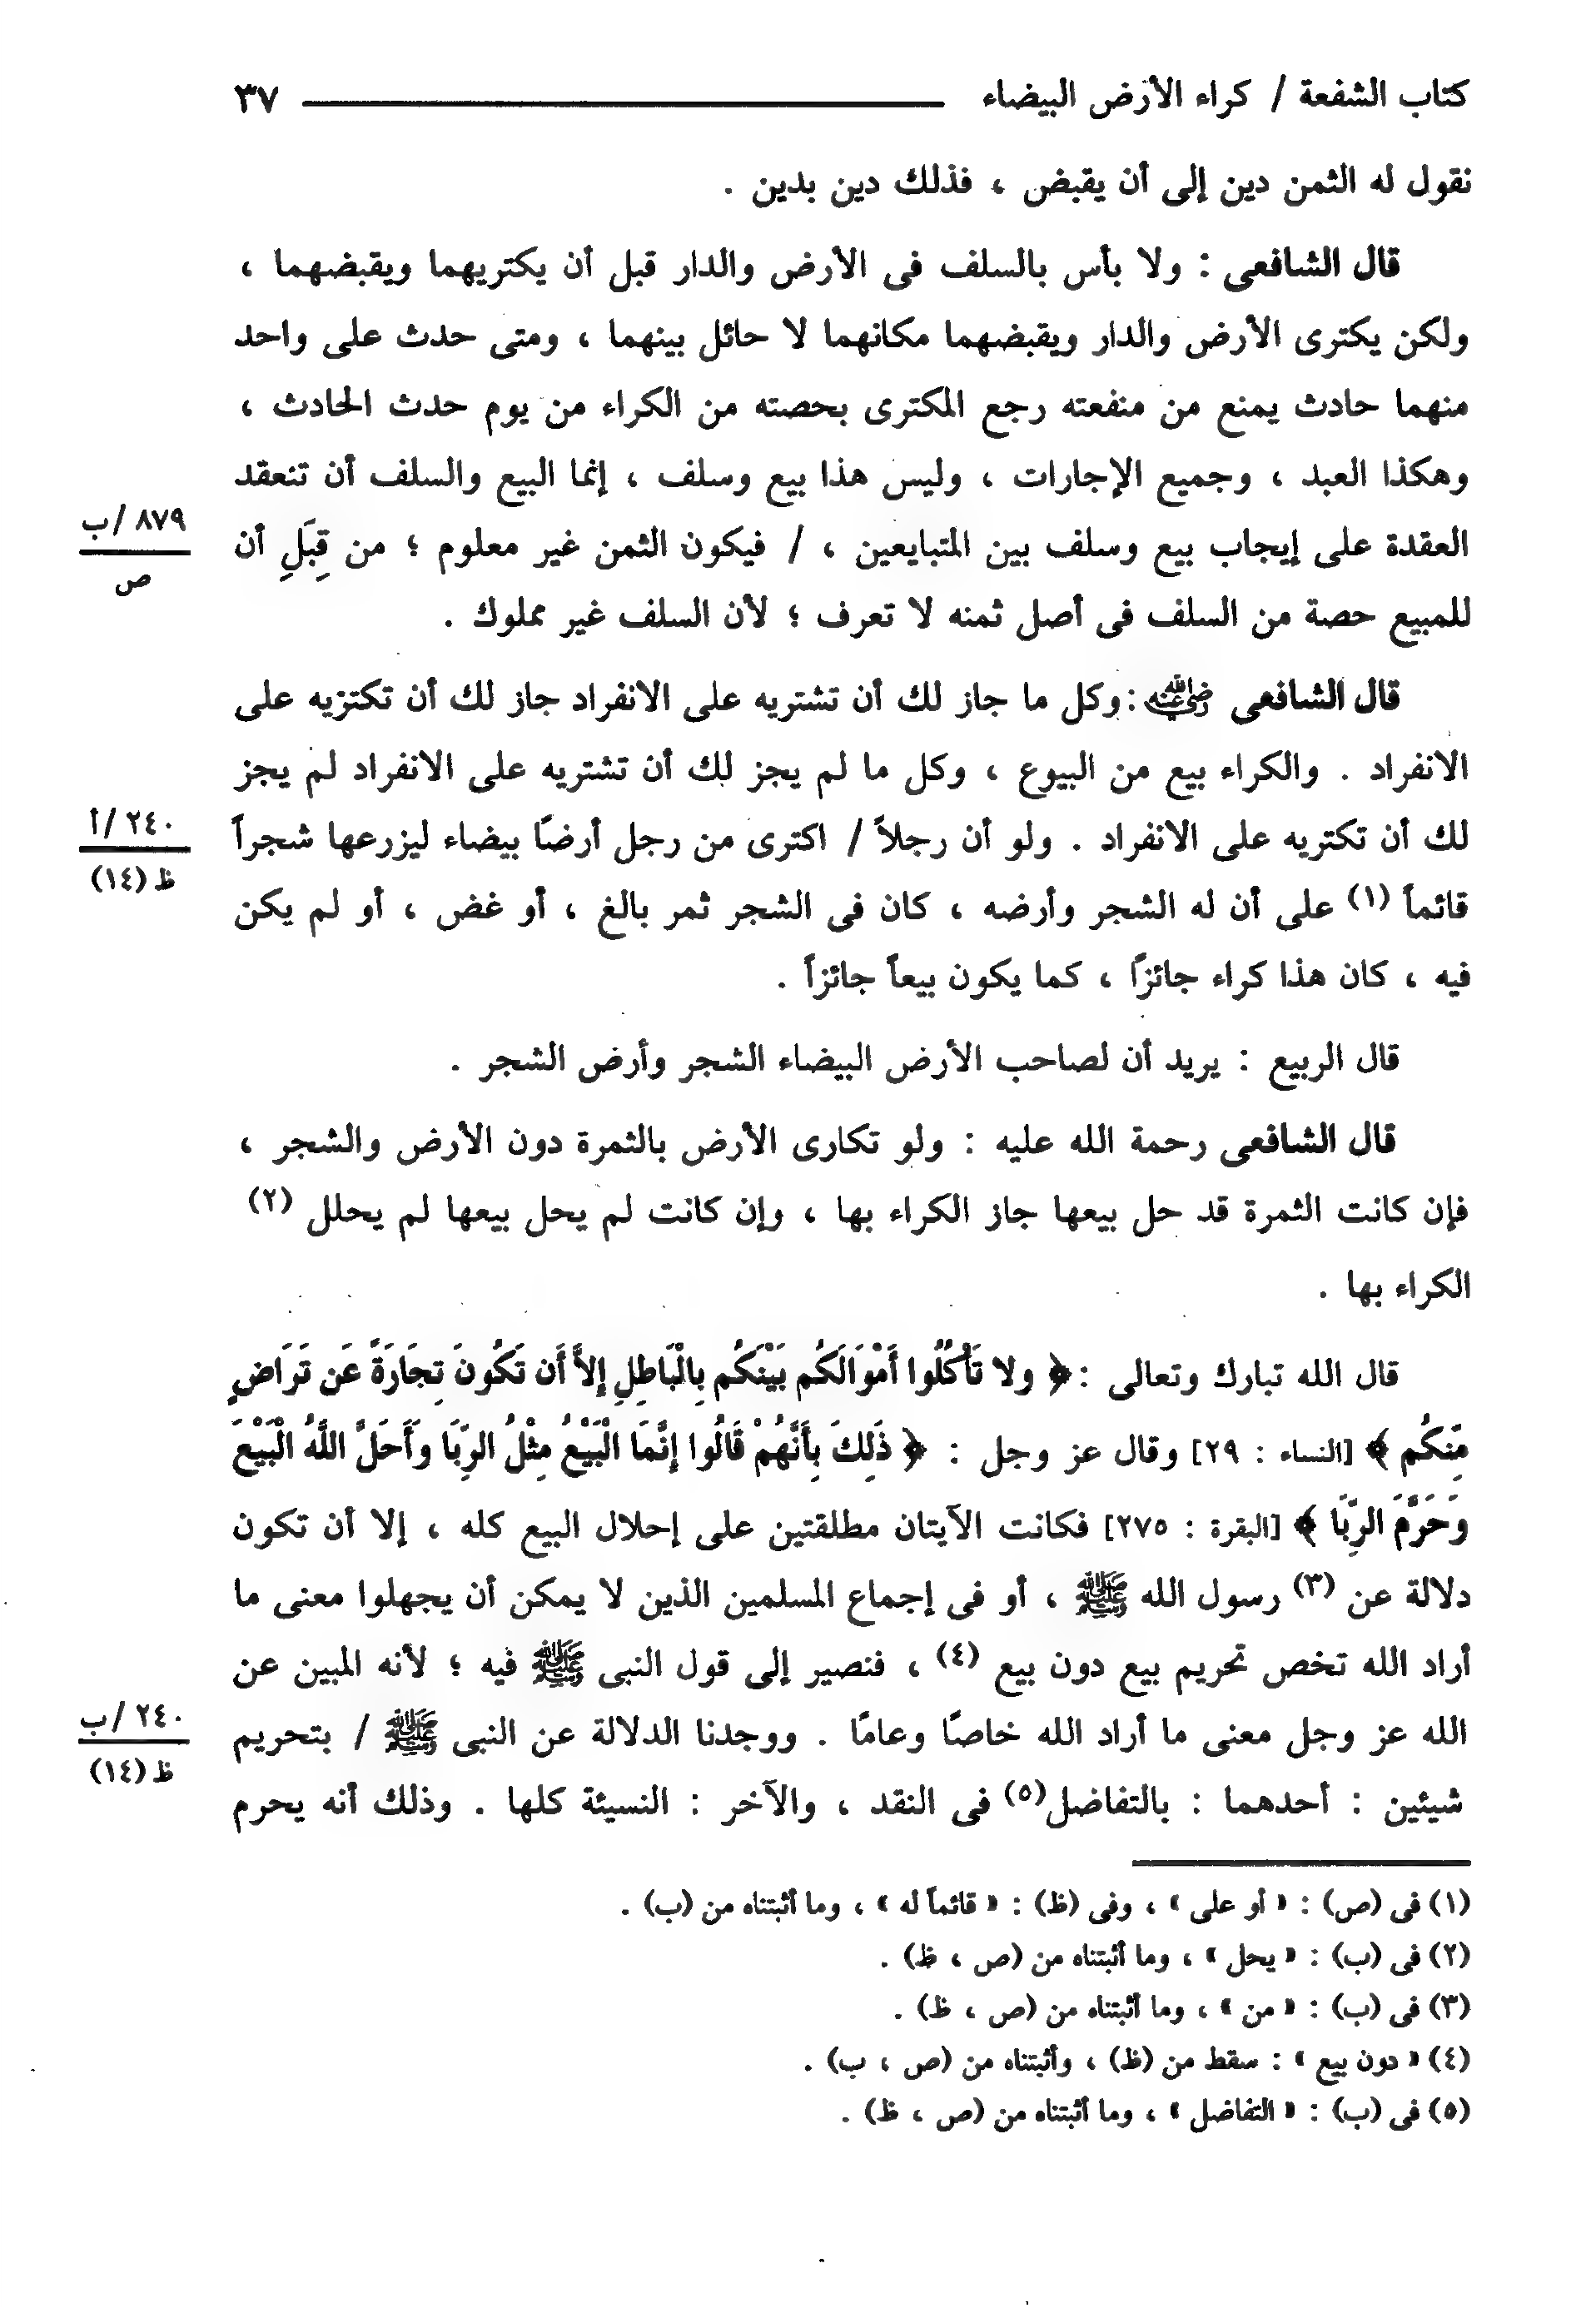 كتاب الشفعة / كراء الأرض البيضاء ــــــــــــــــــــ ٣٧
نقول له الثمن دين إلى أن يقبض ، فذلك دين بدين .
قال الشافعى : ولا بأس بالسلف فى الأرض والدار قبل أن يكتريهما ويقبضهما ،
ولكن يكترى الأرض والدار ويقبضهما مكانهما لا حائل بينهما ، ومتى حدث على واحد
منهما حادث يمنع من منفعته رجع المكترى بحصته من الكراء من يوم حدث الحادث ،
وهكذا العبد ، وجميع الإجارات ، وليس هذا بيع وسلف ، إنما البيع والسلف أن تنعقد
العقدة على إيجاب بيع وسلف بين المتبايعين ، / فيكون الثمن غير معلوم ؛ من قِبَلِ أن
٨٧٩ /ب
ص
للمبيع حصة من السلف فى أصل ثمنه لا تعرف ؛ لأن السلف غير مملوك .
قال الشافعى رضي الله عنه : وكل ما جاز لك أن تشتريه على الانفراد جاز لك أن تكتريه على
الانفراد . والكراء بيع من البيوع ، وكل ما لم يجز لك أن تشتريه على الانفراد لم يجز
لك أن تكتريه على الانفراد . ولو أن رجلاً / اكترى من رجل أرضًا بيضاء ليزرعها شجراً
٢٤٠ /أ
ظ (١٤)
قائماً (١) على أن له الشجر وأرضه ، كان فى الشجر ثمر بالغ ، أو غض ، أو لم يكن
فيه ، كان هذا كراء جائزًا ، كما يكون بيعاً جائزاً .
قال الربيع : يريد أن لصاحب الأرض البيضاء الشجر وأرض الشجر .
قال الشافعى رحمة الله عليه : ولو تكارى الأرض بالثمرة دون الأرض والشجر ،
فإن كانت الثمرة قد حل بيعها جاز الكراء بها ، وإن كانت لم يحل بيعها لم يحلل (٢)
الكراء بها .
قال الله تبارك وتعالى : ﴿ ولا تَأْكُلُوا أَمْوَالَكُم بَيْنَكُم بِالْبَاطِلِ إِلاَّ أَن تَكُونَ تِجَارَةً عَن تَرَاضٍ
مِّنكُم ﴾ [النساء : ٢٩] وقال عز وجل : ﴿ ذَلِكَ بِأَنَّهُمْ قَالُوا إِنَّمَا الْبَيْعُ مِثْلُ الرِّبَا وَأَحَلَّ اللَّهُ الْبَيْعَ
وَحَرَّمَ الرِّبَا ﴾ [البقرة : ٢٧٥] فكانت الآيتان مطلقتين على إحلال البيع كله ، إلا أن تكون
دلالة عن (٣) رسول الله ﷺ ، أو فى إجماع المسلمين الذين لا يمكن أن يجهلوا معنى ما
أراد الله تخص تحريم بيع دون بيع (٤) ، فنصير إلى قول النبى ﷺ فيه ؛ لأنه المبين عن
الله عز وجل معنى ما أراد الله خاصًا وعامًا . ووجدنا الدلالة عن النبى ﷺ / بتحريم
٢٤٠ /ب
ظ (١٤)
شيئين : أحدهما : بالتفاضل(٥) فى النقد ، والآخر : النسيئة كلها . وذلك أنه يحرم
(١) فى (ص) : « أو على » ، وفى (ظ) : « قائماً له » ، وما أثبتناه من (ب) .
(٢) فى (ب) : « يحل » ، وما أثبتناه من (ص ، ظ) .
(٣) فى (ب) : « من » ، وما أثبتناه من (ص ، ظ) .
(٤) « دون بيع » : سقط من (ظ) ، وأثبتناه من (ص ، ب) .
(٥) فى (ب) : « التفاضل » ، وما أثبتناه من (ص ، ظ) .